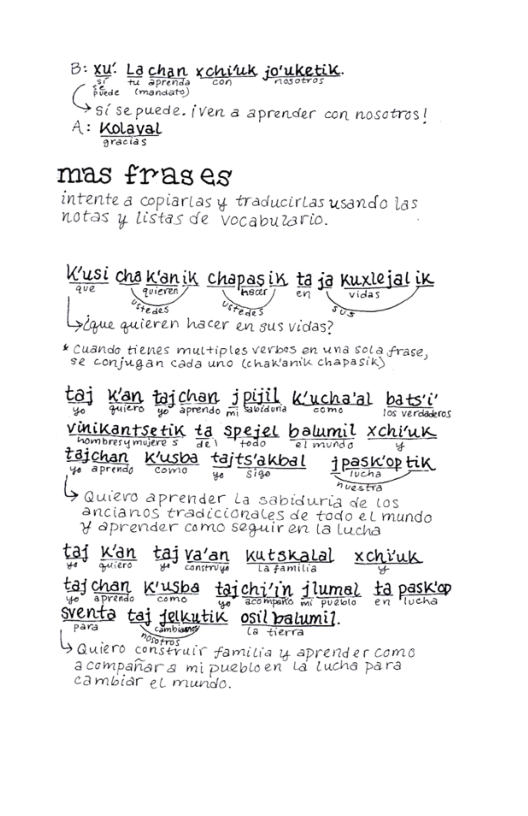 B: xu'. La chan xchi'uk jo'uketik.
sí se puede tu aprenda (mandato) con nosotros
Sí se puede. ¡Ven a aprender con nosotros!
A: Kolaval
gracias
mas frases
intente a copiarlas y traducirlas usando las
notas y listas de vocabulario.
k'usi cha k'anik chapasik ta ja kuxlejalik
que quieren hacer en vidas
ustedes ustedes sus
¿que quieren hacer en sus vidas?
* Cuando tienes multiples verbos en una sola frase,
se conjugan cada uno (chak'anik chapasik)
taj k'an tajchan jpijil k'ucha'al bats'i'
yo quiero yo aprendo mi sabiduria como los verdaderos
vinikantsetik ta spejel balumil xchi'uk
hombres y mujeres del todo el mundo y
tajchan k'usba tajts'akbal jpask'optik
yo aprendo como yo sigo lucha
nuestra
Quiero aprender la sabiduria de los
ancianos tradicionales de todo el mundo
y aprender como seguir en la lucha
taj k'an taj va'an kutskalal xchi'uk
yo quiero yo construyo la familia y
tajchan k'usba tajchi'in jlumal ta pask'op
yo aprendo como yo acompaño mi pueblo en lucha
sventa taj jelkutik osilbalumil.
para cambiamos la tierra
nosotros
Quiero construir familia y aprender como
acompañar a mi pueblo en la lucha para
cambiar el mundo.